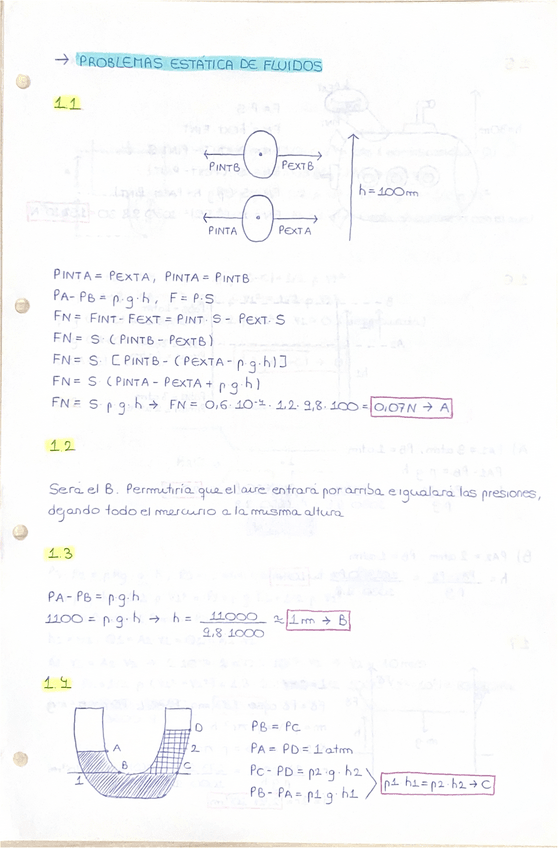 → PROBLEMAS ESTÁTICA DE FLUIDOS
1.1
PINTB PEXTB
h = 100m
PINTA PEXTA
PINTA = PEXTA, PINTA = PINTB
PA - PB = ρ·g·h, F = P·S
FN = FINT - FEXT = PINT·S - PEXT·S
FN = S·(PINTB - PEXTB)
FN = S·[PINTB - (PEXTA - ρ·g·h)]
FN = S·(PINTA - PEXTA + ρ·g·h)
FN = S·ρ·g·h → FN = 0,6·10⁻⁴·1,2·9,8·100 = 0,07N → A
1.2
Será el B. Permitiría que el aire entrará por arriba e igualará las presiones,
dejando todo el mercurio a la misma altura
1.3
PA - PB = ρ·g·h
1100 = ρ·g·h → h = 11000 / 9,8·1000 ≈ 1m → B
1.4
A B C D 1 2
PB = PC
PA = PD = 1 atm
PC - PD = ρ2·g·h2
PB - PA = ρ1·g·h1
ρ1·h1 = ρ2·h2 → C